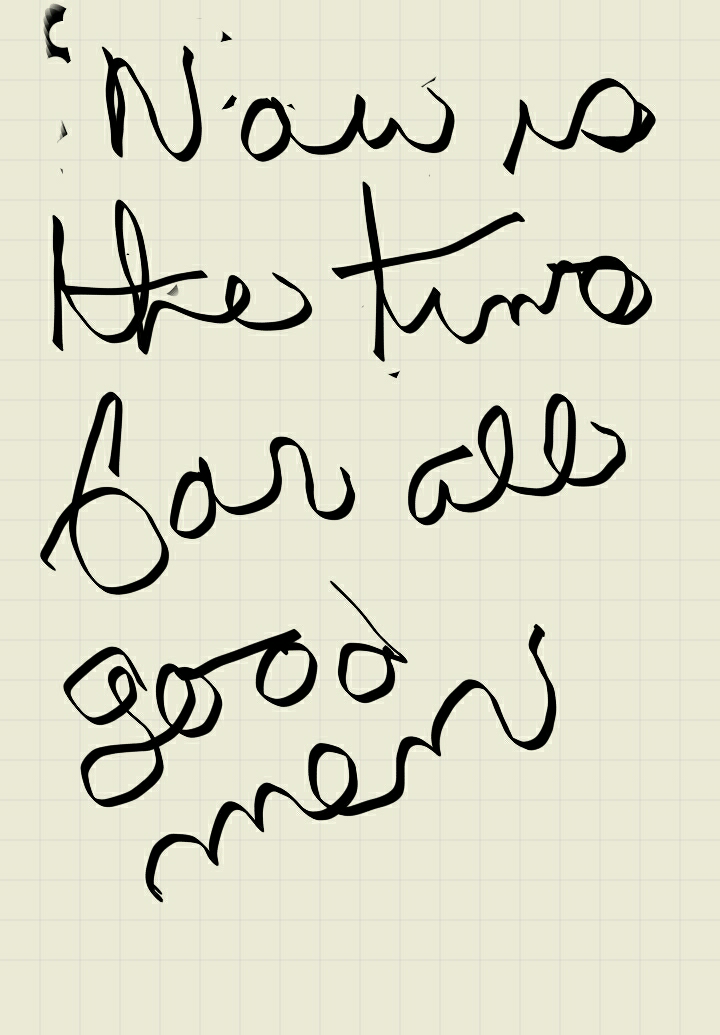 Now is
the time
for all
good
men